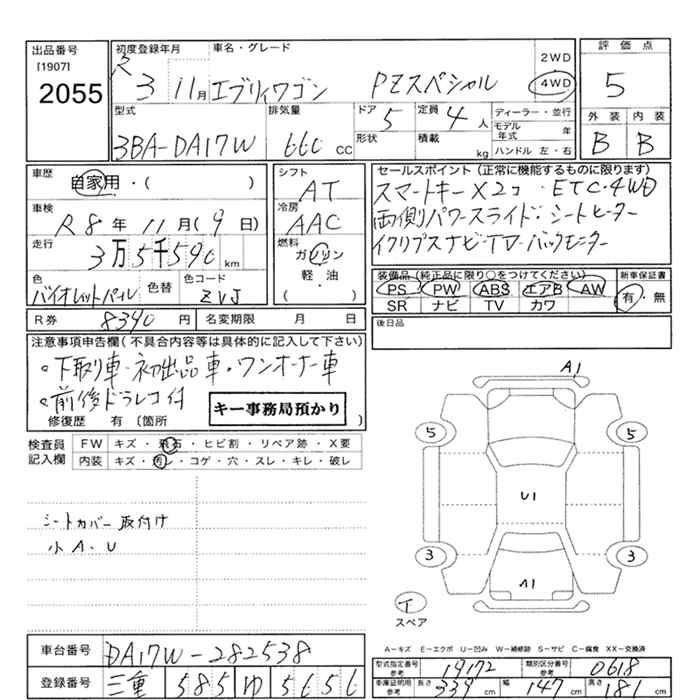 出品番号
[1907]
2055
初度登録年月
R 3 11月
車名・グレード
エブリィワゴン PZスペシャル
2WD
4WD
評価点
5
外装 内装
B B
型式
3BA-DA17W
排気量
660 CC
ドア 5
形状
定員 4 人
積載 kg
ディーラー・並行
モデル年式 年
ハンドル 左・右
車歴
自家用・( )
車検
R8年 11月(9日)
走行
3万5千590 km
色
バイオレットパール
色替
色コード
ZVJ
シフト
AT
冷房
AAC
燃料
ガソリン
軽・油
( )
セールスポイント(正常に機能するものに限ります)
スマートキーX2コ・ETC・4WD
両側パワースライド・シートヒーター
イクリプスナビ・TV・バックモニター
装備品(純正品に限り○をつけてください)
PS PW ABS エアB AW
SR ナビ TV カワ
新車保証書
有・無
R券 8390 円
名変期限 月 日
後日品
注意事項申告欄(不具合内容等は具体的に記入して下さい)
。下取り車・初出品車・ワンオーナー車
。前後ドラレコ付
キー事務局預かり
修復歴 有〔箇所 〕
検査員
記入欄
FW キズ・飛石・ヒビ割・リペア跡・X要
内装 キズ・汚レ・コゲ・穴・スレ・キレ・破レ
シートカバー取付け
小A・U
A1
5 5
U1
3 3
A1
T
スペア
A-キズ E-エクボ U-凹み W-補修跡 S-サビ C-腐食 XX-交換済
車台番号 DA17W-282538
登録番号 三重 585 ゆ 5656
型式指定番号 参考 19172
類別区分番号 参考 0618
車庫証明用 参考 長さ 339 cm 幅 147 cm 高さ 181 cm